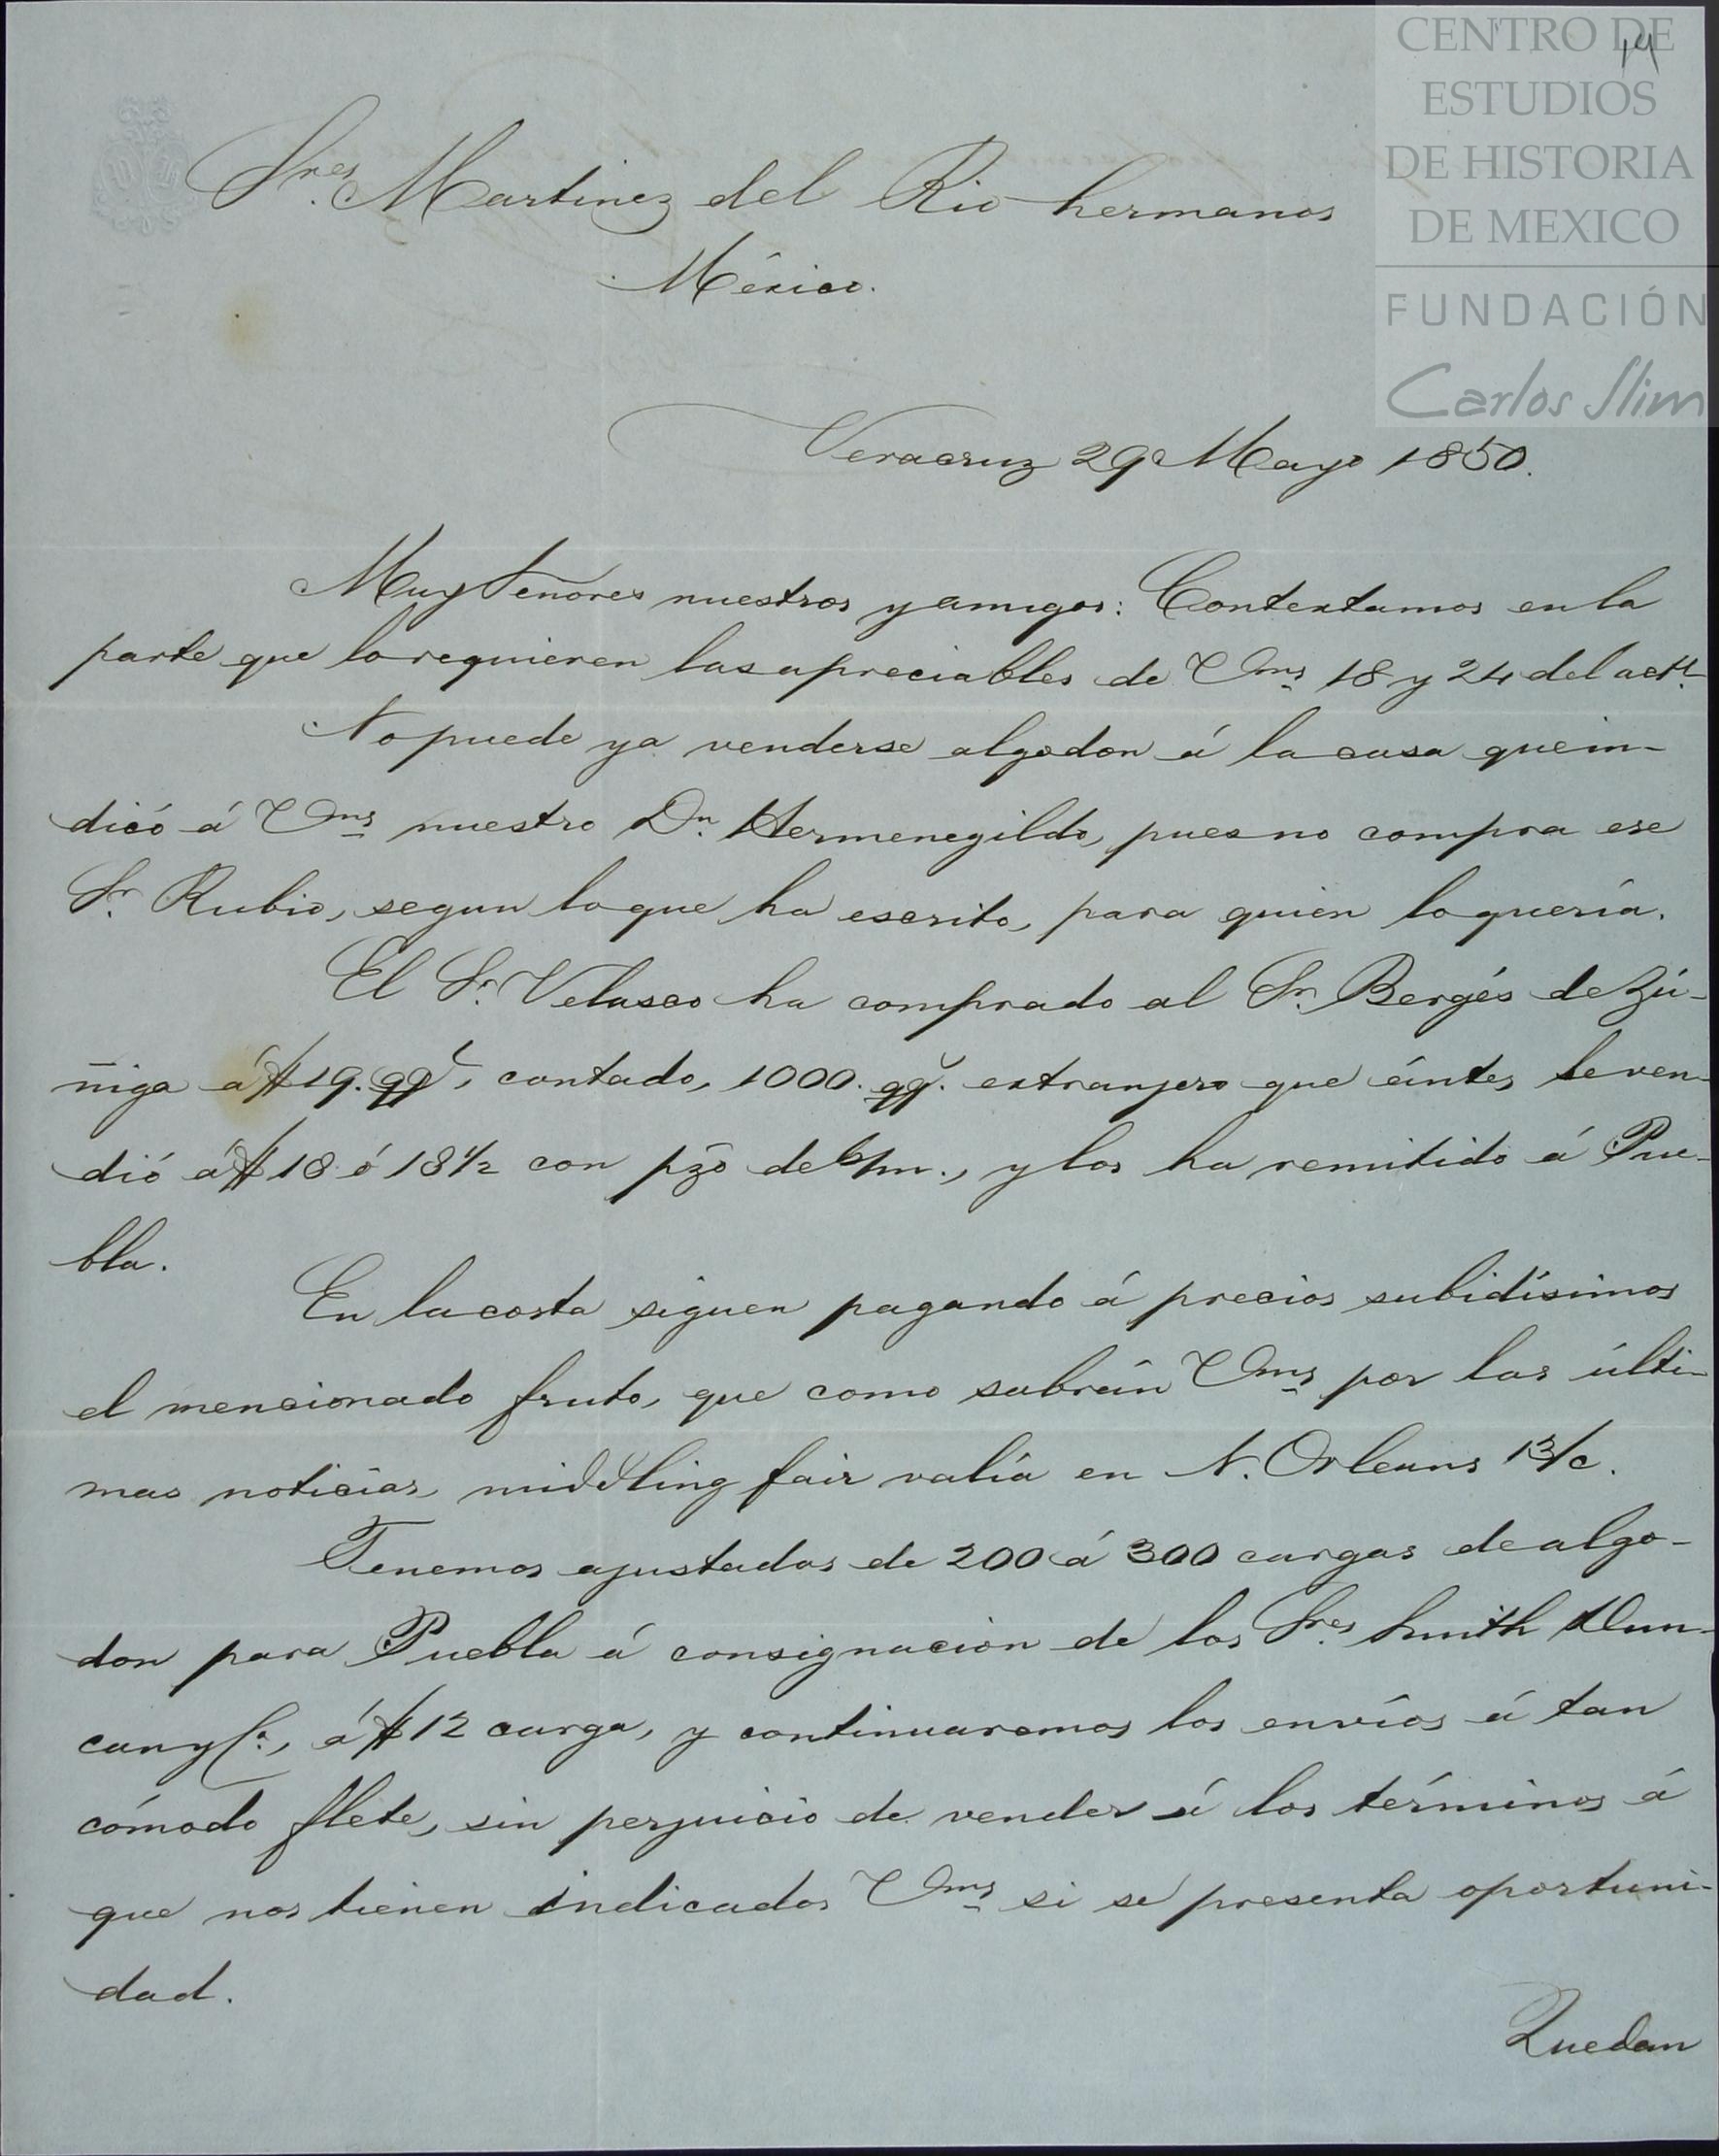 CENTRO DE
ESTUDIOS
DE HISTORIA
DE MEXICO
FUNDACIÓN
Carlos Slim
14
Sres. Martinez del Rio hermanos
México.
Veracruz 29 Mayo 1850.
Muy Señores nuestros y amigos: Contextamos en la
parte que lo requieren las apreciables de Vms 18 y 24 del actl.
No puede ya venderse algodon á la casa que in-
dicó á Vms nuestro Dn. Hermenegildo, pues no compra ese
Sr. Rubio, segun lo que ha escrito, para quien lo quería.
El Sr. Velasco ha comprado al Sr. Bergés de Zú-
ñiga á $19. qql, contado, 1000. qq. extranjero que ántes se ven-
dió á $18 ó 18½ con pzo de 6/m., y los ha remitido á Pue-
bla.
En la costa siguen pagando á precios subidísimos
el mencionado fruto, que como sabrán Vms por las últi-
mas noticias middling fair valía en N. Orleans 13/c.
Tenemos ajustadas de 200 á 300 cargas de algo-
don para Puebla á consignacion de los Sres. Smith Dun-
can y Ca., á $12 carga, y continuaremos los envíos á tan
cómodo flete, sin perjuicio de vender á los términos á
que nos tienen indicados Vms si se presenta oportuni-
dad.
Quedan